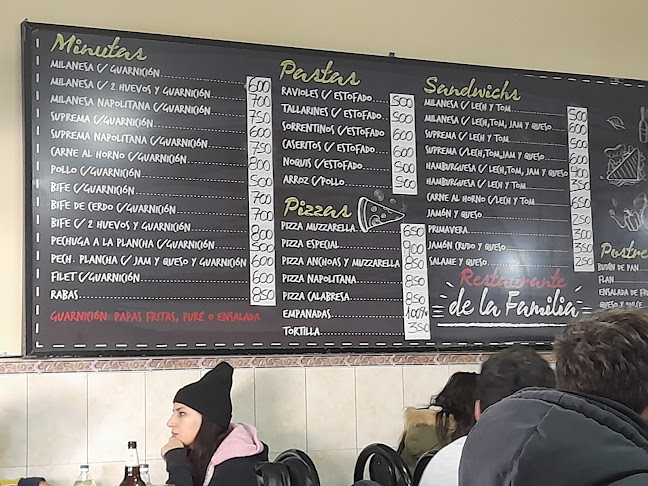 Minutas
MILANESA C/GUARNICIÓN 600
MILANESA C/ 2 HUEVOS Y GUARNICIÓN 700
MILANESA NAPOLITANA C/GUARNICIÓN 750
SUPREMA C/GUARNICIÓN 600
SUPREMA NAPOLITANA C/GUARNICIÓN 750
CARNE AL HORNO C/GUARNICIÓN 800
POLLO C/GUARNICIÓN 500
BIFE C/GUARNICIÓN 700
BIFE DE CERDO C/GUARNICIÓN 700
BIFE C/ 2 HUEVOS Y GUARNICIÓN 800
PECHUGA A LA PLANCHA C/GUARNICIÓN 500
PECH. PLANCHA C/ JAM Y QUESO Y GUARNICIÓN 600
FILET C/GUARNICIÓN 600
RABAS 850
GUARNICIÓN: PAPAS FRITAS, PURÉ O ENSALADA
Pastas
RAVIOLES C/ESTOFADO 500
TALLARINES C/ESTOFADO 500
SORRENTINOS C/ESTOFADO 600
CASERITOS C/ESTOFADO 600
ÑOQUIS C/ESTOFADO 500
ARROZ C/POLLO 500
Pizzas
PIZZA MUZZARELLA 650
PIZZA ESPECIAL 900
PIZZA ANCHOAS Y MUZZARELLA 850
PIZZA NAPOLITANA 850
PIZZA CALABRESA 850
EMPANADAS
TORTILLA 350
Sandwichs
MILANESA C/ LECH Y TOM 500
MILANESA C/ LECH, TOM, JAM Y QUESO 600
SUPREMA C/ LECH Y TOM 500
SUPREMA C/ LECH, TOM, JAM Y QUESO 600
HAMBURGUESA C/ LECH, TOM, JAM Y QUESO 400
HAMBURGUESA C/ LECH Y TOM 350
CARNE AL HORNO C/LECH Y TOM 650
JAMÓN Y QUESO 250
PRIMAVERA 300
JAMÓN CRUDO Y QUESO 350
SALAME Y QUESO 250
Restaurante
de la Familia
Postre
BUDIN DE PAN
FLAN
ENSALADA DE FRU
QUESO Y DULCE